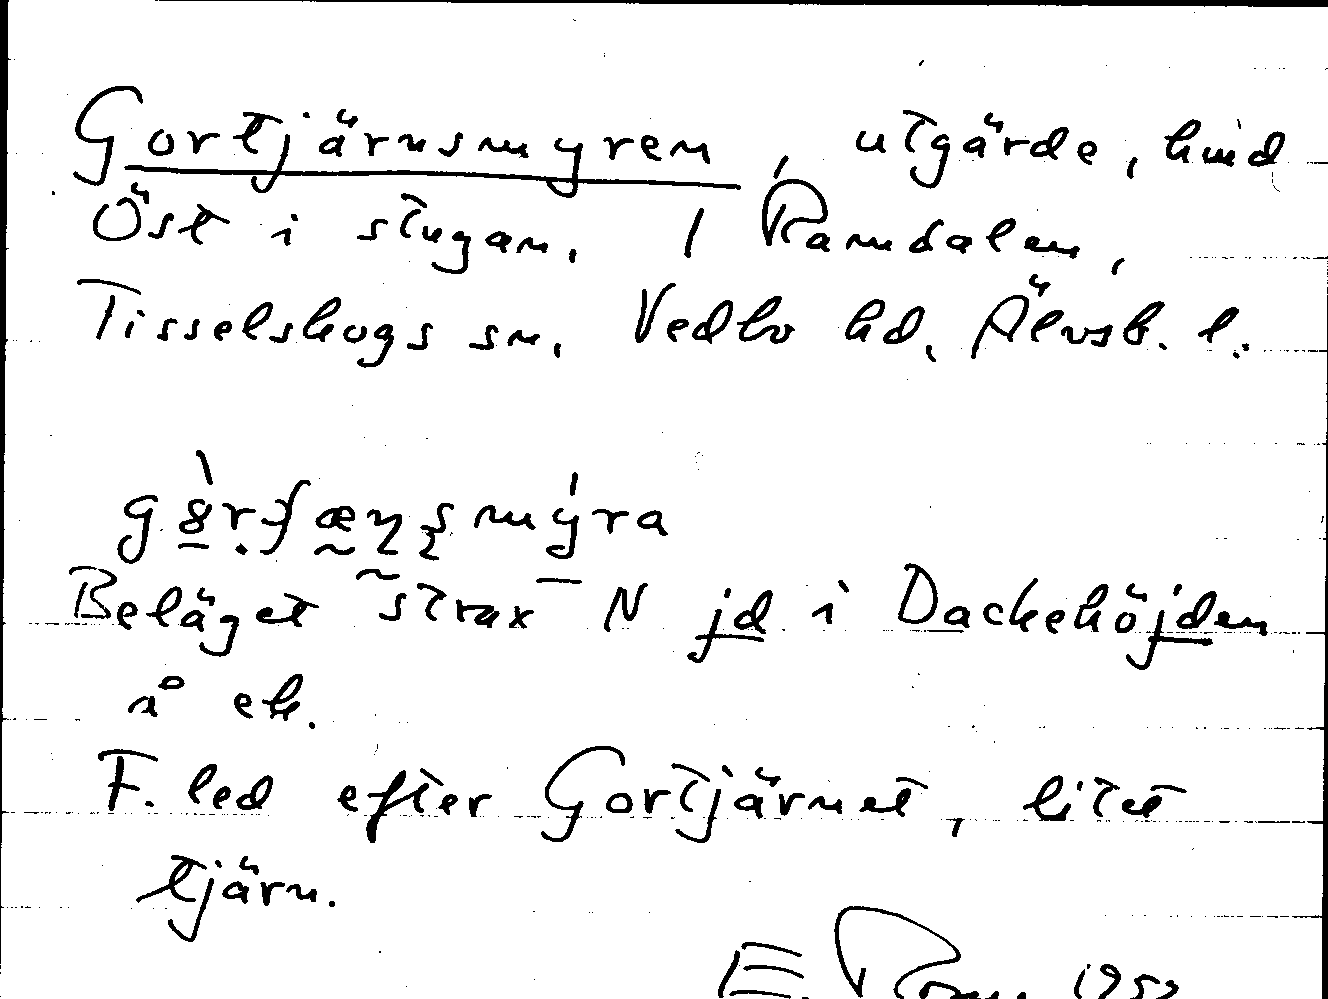 Gortjärnsmyren, utgärde, hmd
Öst i stugan. I Ramdalen,
Tisselskogs sn. Vedbo hd, Älvsb. l.
Beläget strax N jd i Dackehöjden
å ek.
F. led efter Gortjärnet, litet
tjärn.
E.